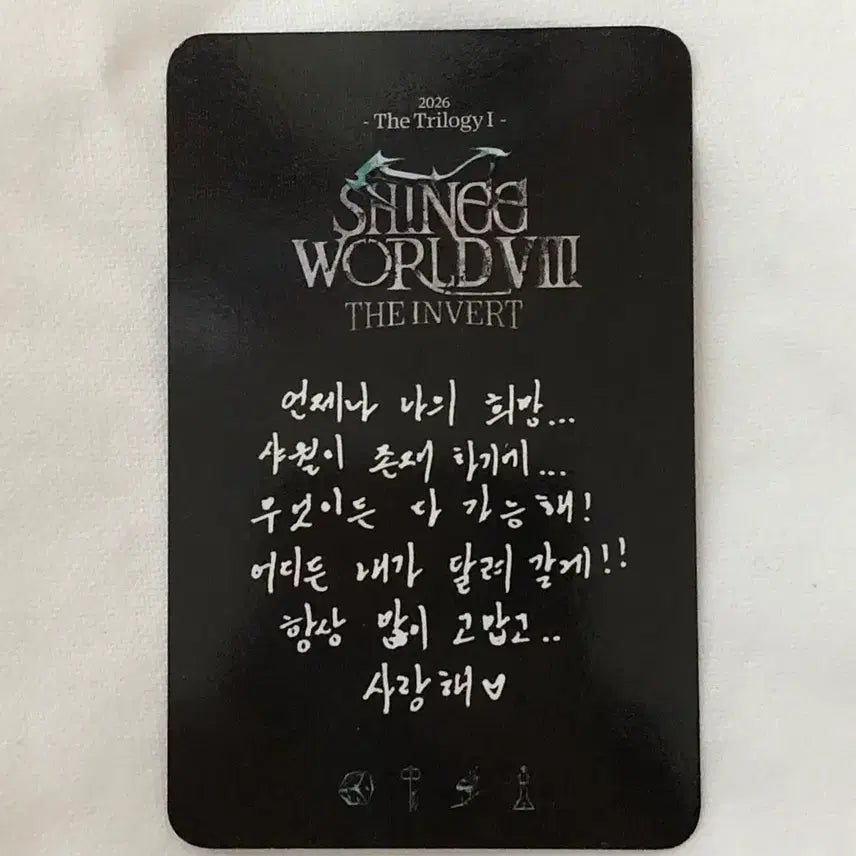 2026
- The Trilogy I -
SHINee
WORLD VIII
THE INVERT
언제나 나의 희망...
샤월이 존재 하기에...
무엇이든 다 가능해!
어디든 내가 달려 갈게!!
항상 많이 고맙고..
사랑해♡